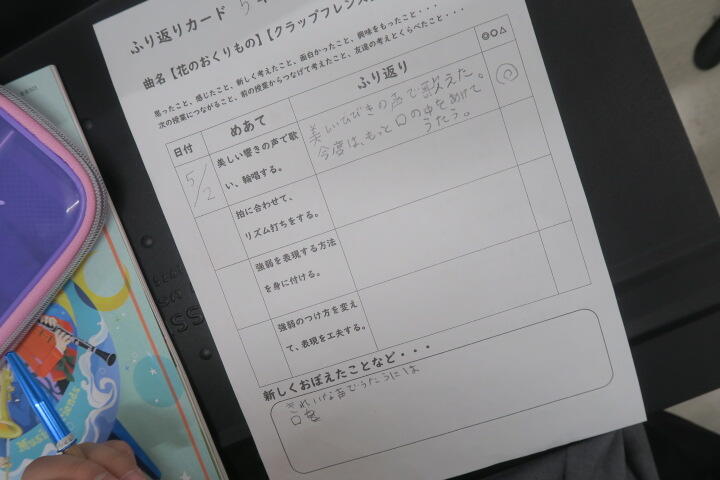 ふり返りカード 5
曲名【花のおくりもの】【クラップフレンズ
思ったこと、感じたこと、新しく考えたこと、面白かったこと、興味をもったこと・・・
次の授業につながること、前の授業からつなげて考えたこと、友達の考えとくらべたこと・・・
日付 めあて ふり返り ◎○△
5/2 美しい響きの声で歌い、輪唱する。
美しいひびきの声で歌えた。
今度は、もっと口の中をあけて
うたう。
◎
拍に合わせて、
リズム打ちをする。
強弱を表現する方法
を身に付ける。
強弱のつけ方を変え
て、表現を工夫する。
新しくおぼえたことなど・・・
きれいな声でうたうには
口を
Music